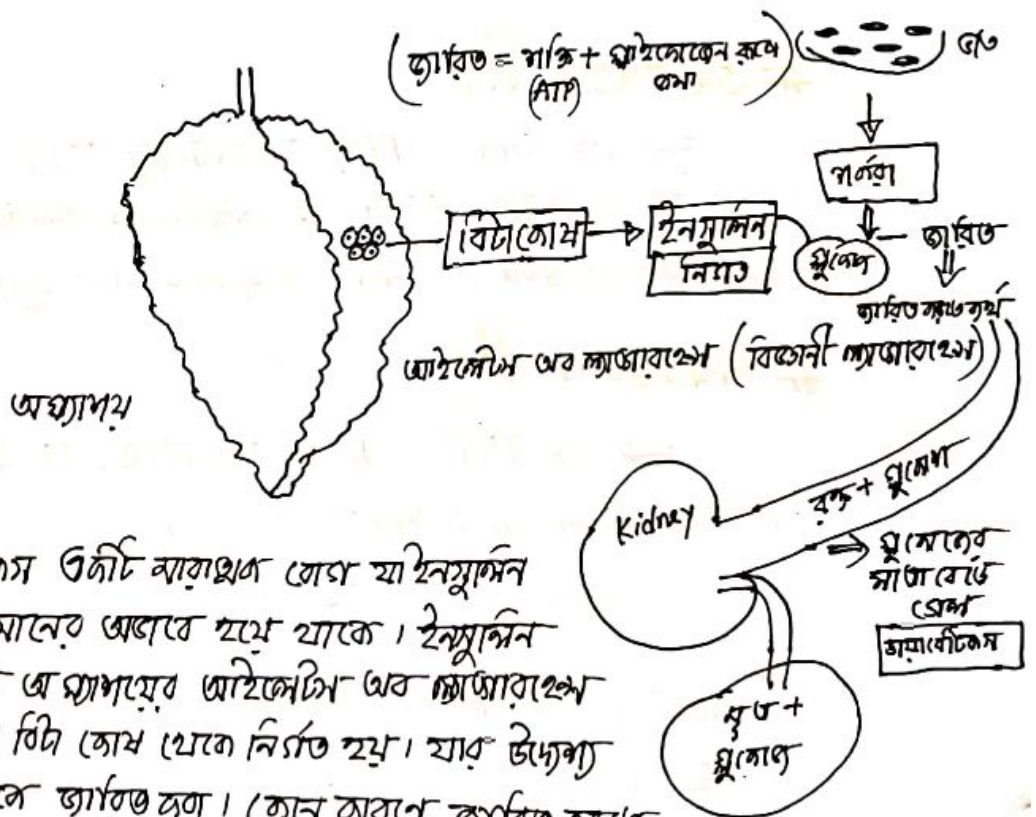 (জারিত = শক্তি + গ্লাইকোজেন রূপে
(ATP) জমা)
ভাত
শর্করা
বিটাকোষ
ইনসুলিন
নির্গত
গ্লুকোজ
জারিত
জারিত করতে ব্যর্থ
আইলেটস অব ল্যাঙ্গারহেন্স (বিজ্ঞানী ল্যাঙ্গারহেন্স)
অগ্ন্যাশয়
Kidney
রক্ত + গ্লুকোজ
গ্লুকোজের
মাত্রা বেড়ে
গেল
ডায়াবেটিকস
মূত্র +
গ্লুকোজ
একটি মারাত্মক রোগ যা ইনসুলিন
অভাবে হয়ে থাকে। ইনসুলিন
অগ্ন্যাশয়ের আইলেটস অব ল্যাঙ্গারহেন্স
বিটা কোষ থেকে নির্গত হয়। যার উদ্দেশ্য
জারিত করা। কোন কারণে